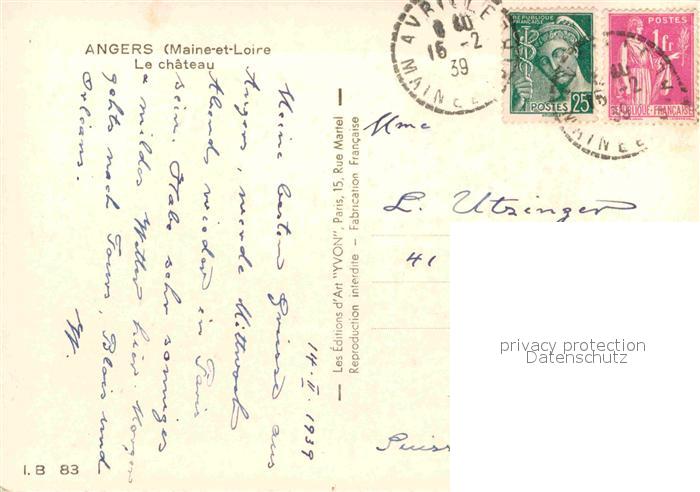 ANGERS (Maine-et-Loire
Le château
14. II. 1939
Meine besten Grüsse aus
Angers, werde Mittwoch
Abend wieder in Paris
sein. Habe sehr sonniges
& mildes Wetter hier. Morgen
gehts nach Tours, Blois und
Orléans.
W.
I. B 83
Les Éditions d'Art "YVON", Paris, 15, Rue Martel
Reproduction interdite - Fabrication Française
AVRILLE
16 -2
39
MAINE E
REPUBLIQUE FRANÇAISE
POSTES 25
POSTES
1 fr
REPUBLIQUE-FRANÇAISE
-2
39
MAINE E
Mme
L. Utzinger
41
Suiss
privacy protection
Datenschutz